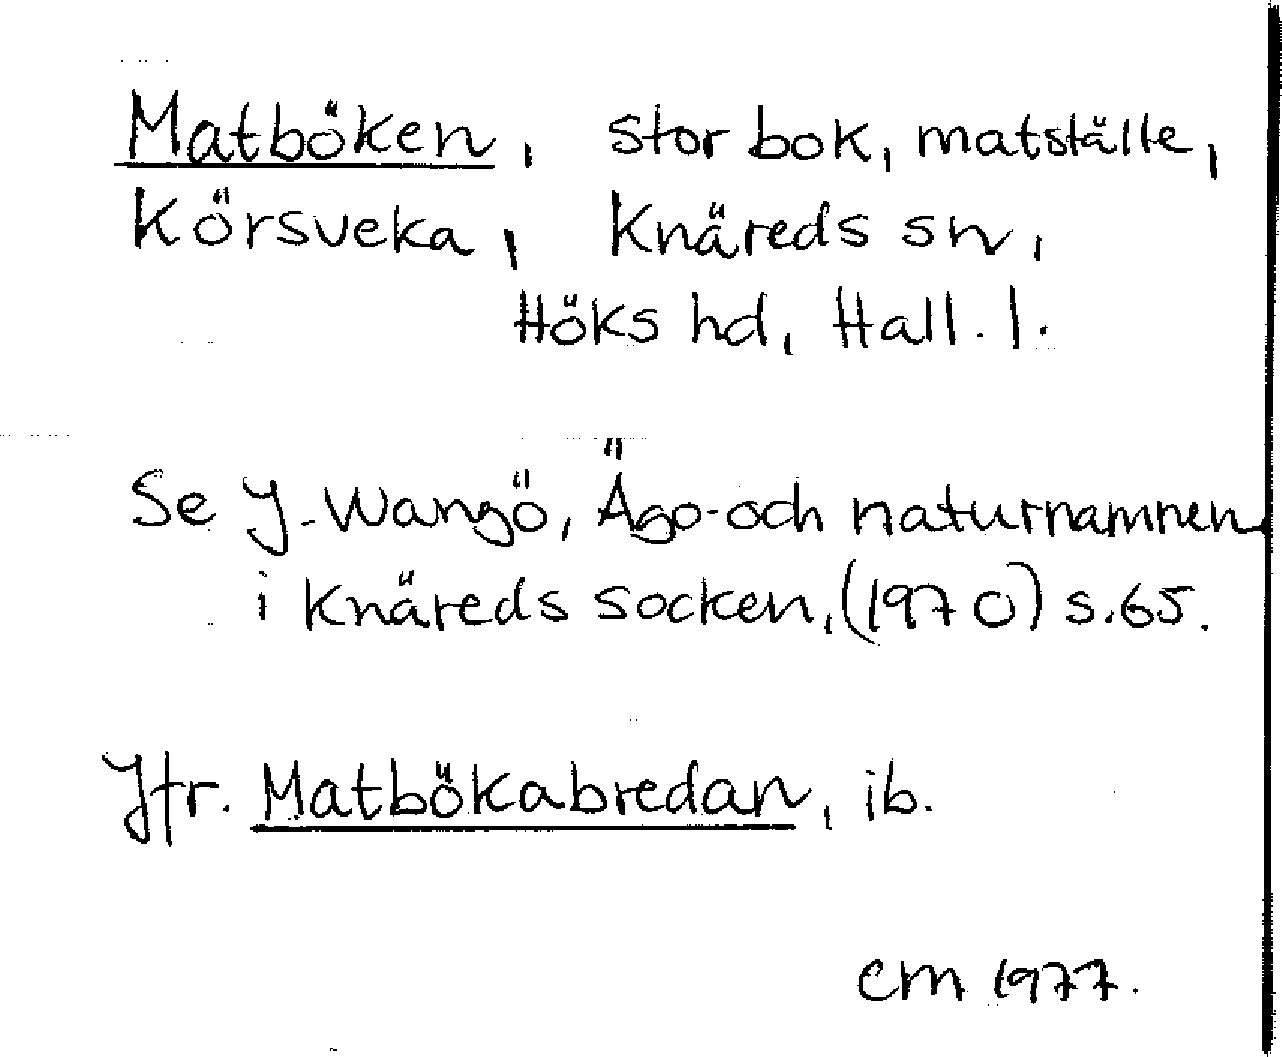 Matböken, stor bok, matställe,
Körsveka, Knäreds sn,
Höks hd, Hall. l.
Se J. Wangö, Ägo- och naturnamnen
i Knäreds socken, (1970) s. 65.
Jfr. Matbökabredan, ib.
cm 1977.